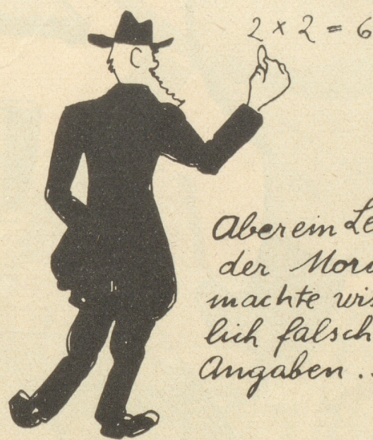 2 × 2 = 6
Aber ein
der
machte
lich falsch
Angaben..